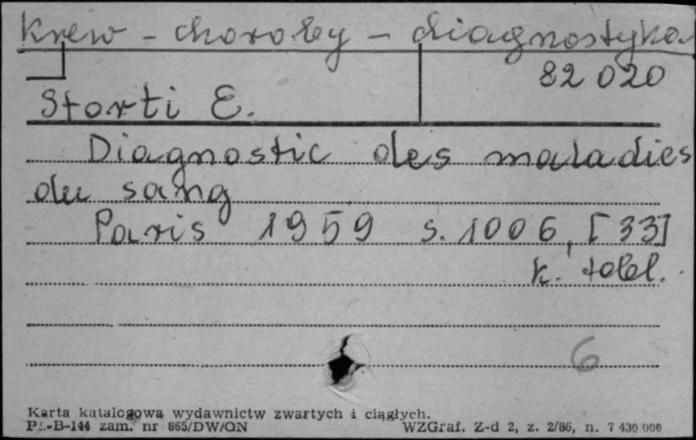 Krew - choroby - diagnostyka
82 020
Storti E.
Diagnostic des maladies
du sang
Paris 1959 s. 1006, [33]
k. tabl.
6
Karta katalogowa wydawnictw zwartych i ciągłych.
Pu-B-144 zam. nr 865/DW/ON WZGraf. Z-d 2, z. 2/86, n. 7 430 000